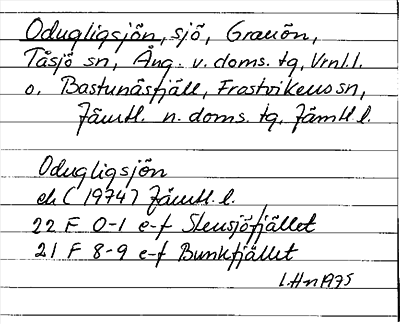 Odugligsjön, sjö, Granön,
Tåsjö sn, Ång. v. doms. tg, Vrnl.l.
o. Bastunäsfjäll, Frostvikens sn,
Jämtl. n. doms. tg, Jämtl l.
Odugligsjön
ek (1974) Jämtl. l.
22 F 0-1 e-f Stensjöfjället
21 F 8-9 e-f Bunkfjället
1975